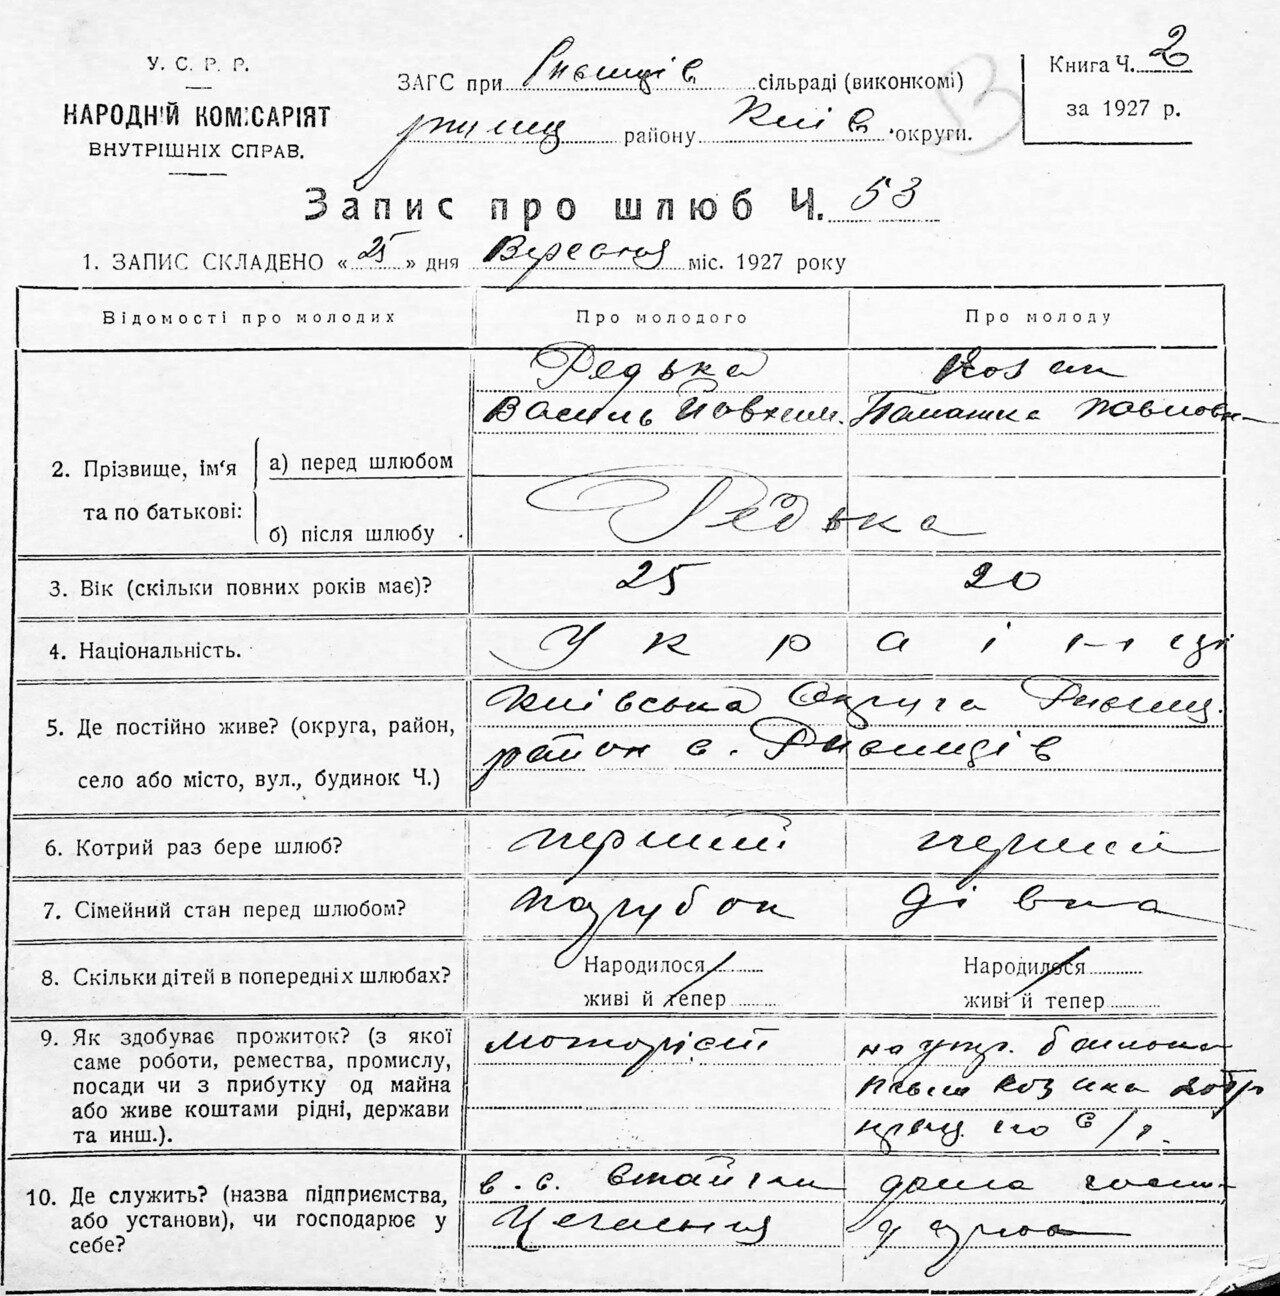 У. С. Р. Р.
НАРОДНІЙ КОМІСАРІЯТ
ВНУТРІШНІХ СПРАВ.
ЗАГС при Ржищів сільраді (виконкомі)
ржищ району Київ округи.
Книга Ч. 2
за 1927 р.
Запис про шлюб Ч. 53
1. ЗАПИС СКЛАДЕНО « 25 » дня Вересня міс. 1927 року
Відомості про молодих Про молодого Про молоду
2. Прізвище, ім'я та по батькові:
а) перед шлюбом
Редька
Василь Йовхим.
Козак
Палашка Павловн
б) після шлюбу
Редька
3. Вік (скільки повних років має)? 25 20
4. Національність. Українці
5. Де постійно живе? (округа, район,
село або місто, вул., будинок Ч.)
Київська Округа Ржищ.
район с. Ржищів
6. Котрий раз бере шлюб? перший перший
7. Сімейний стан перед шлюбом? парубок дівка
8. Скільки дітей в попередніх шлюбах?
Народилося
живі й тепер
Народилося
живі й тепер
9. Як здобуває прожиток? (з якої
саме роботи, ремества, промислу,
посади чи з прибутку од майна
або живе коштами рідні, держави
та инш.).
моторіст
на утр. батька
Козака
прац. по с/г.
10. Де служить? (назва підприємства,
або установи), чи господарює у
себе?
в. с. Стайки
Цегельня
дома